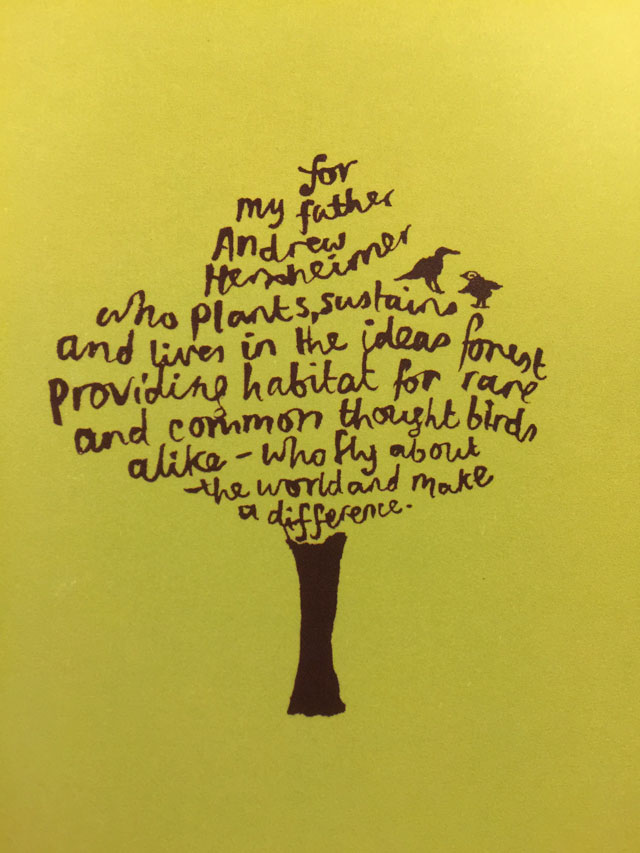 for
my father
Andrew
Herxheimer
who plants, sustains
and lives in the ideas forest
providing habitat for rare
and common thought birds
alike - who fly about
the world and make
a difference.